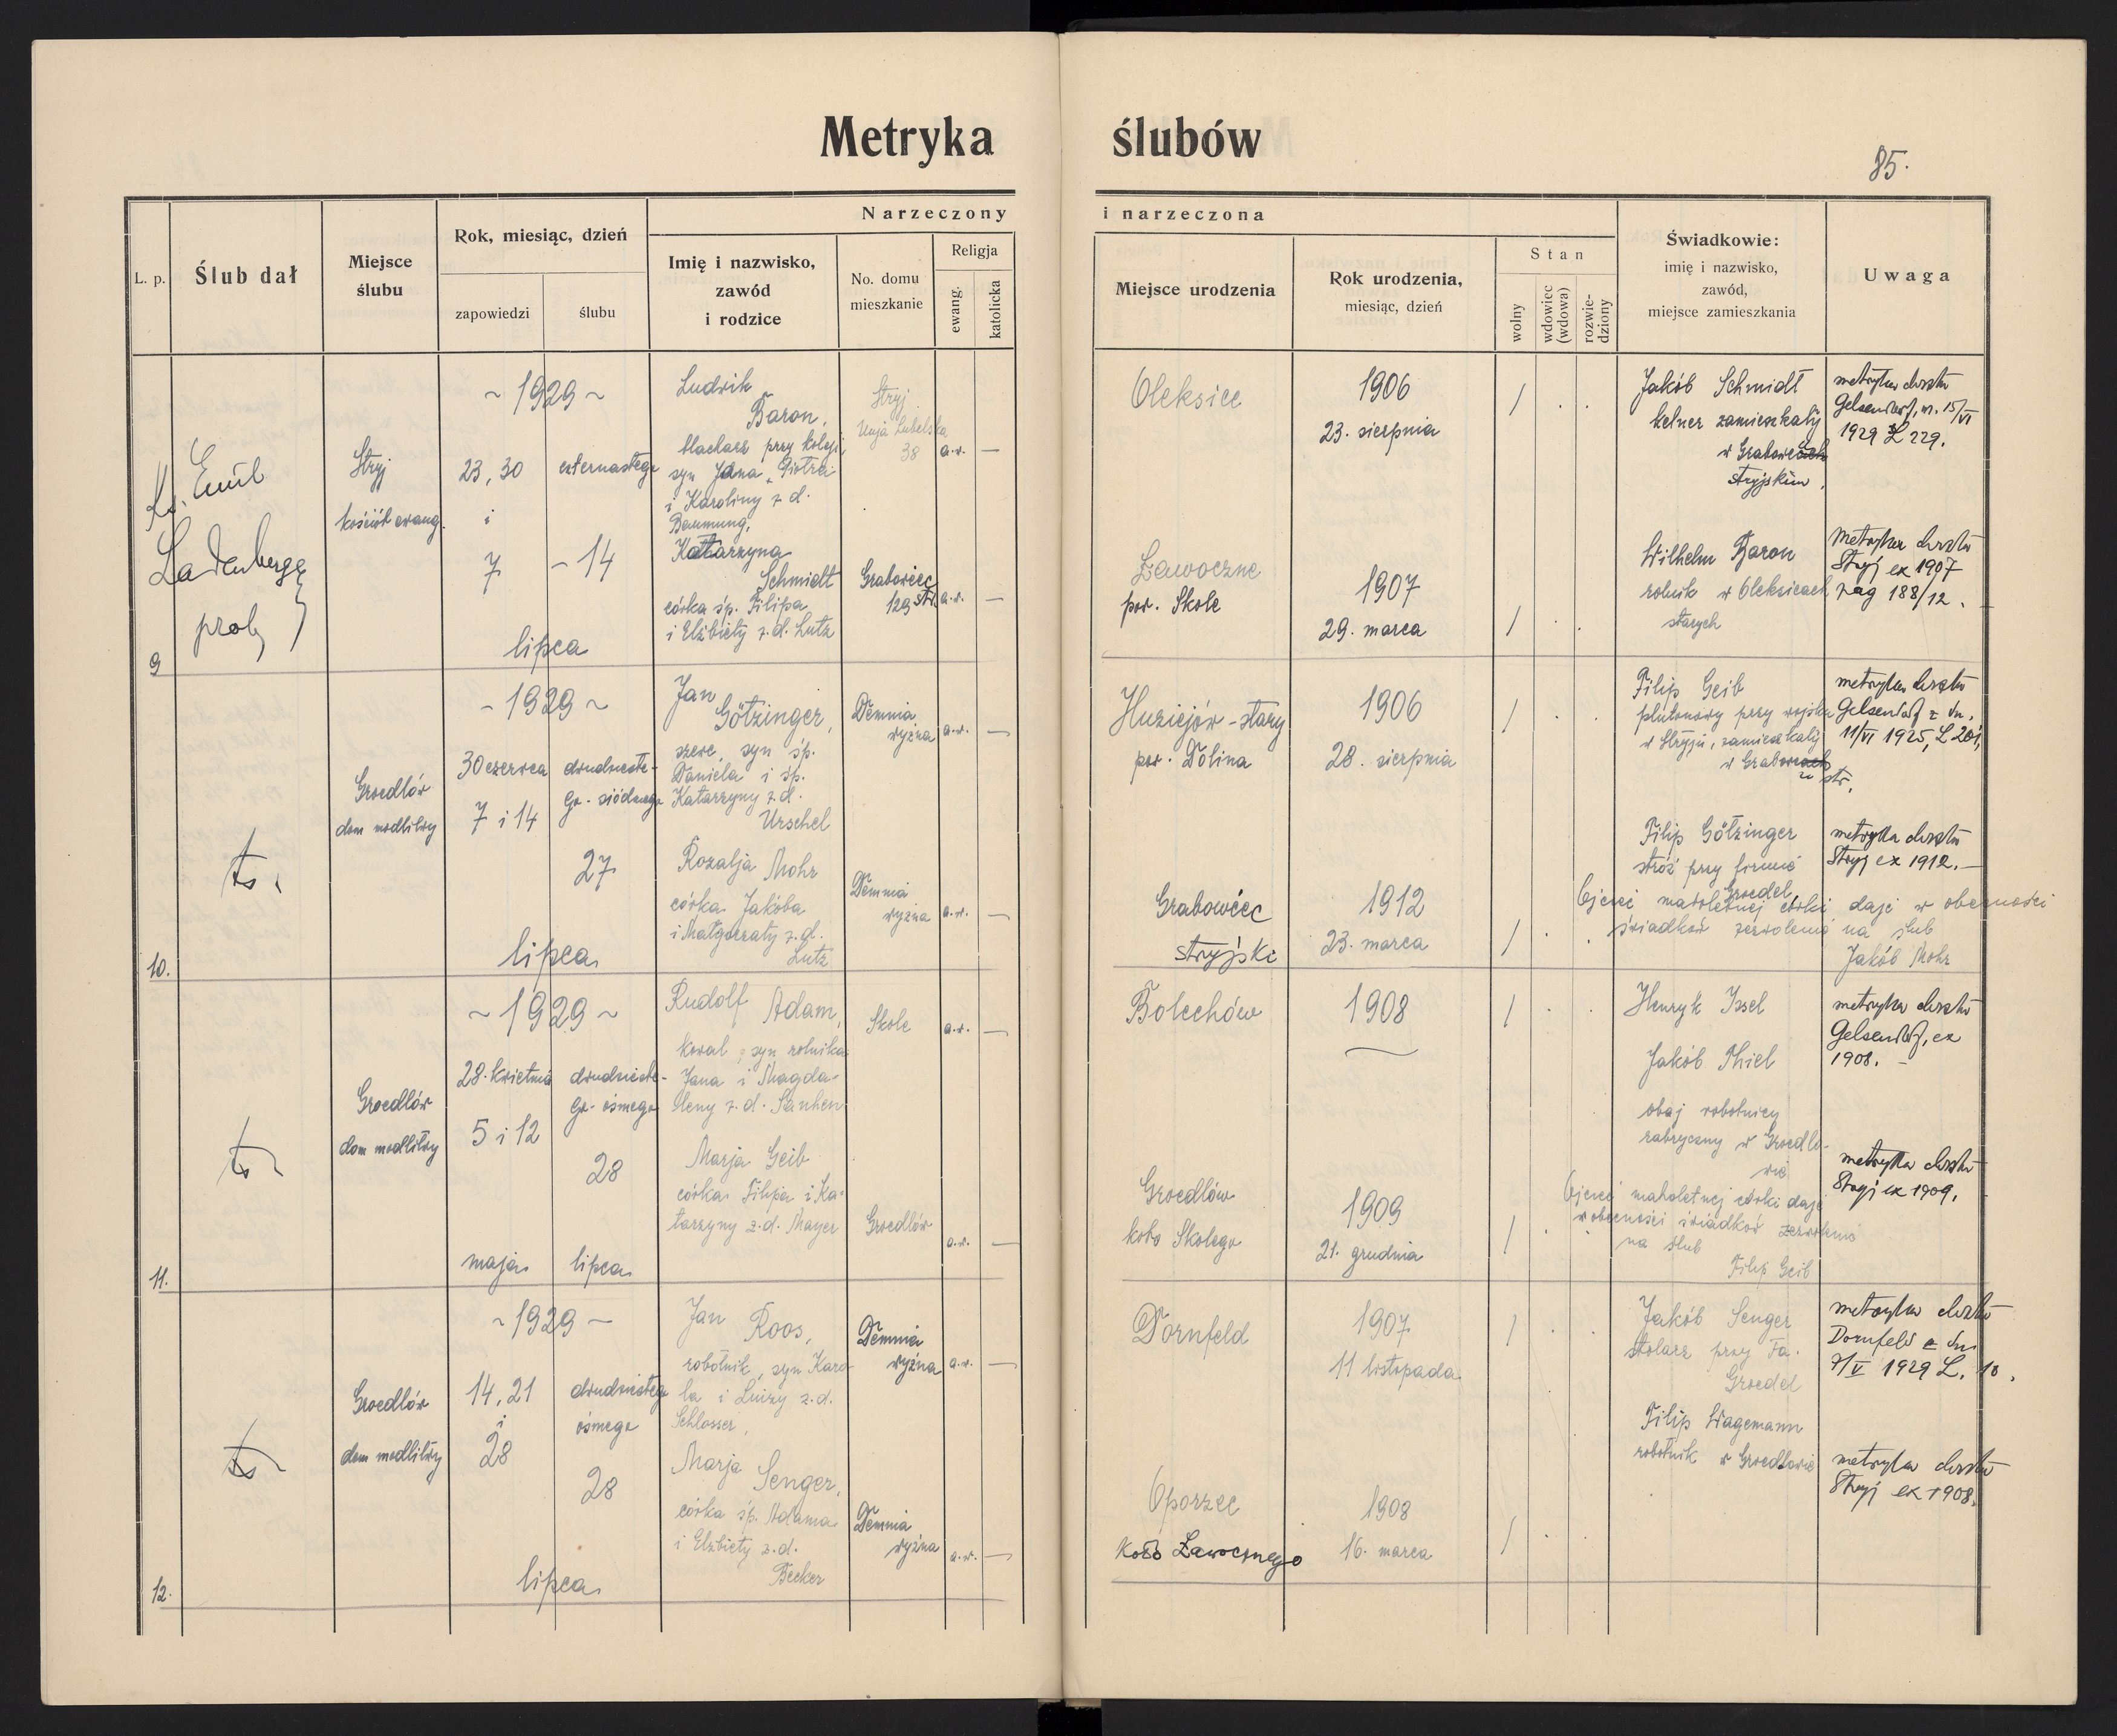 Metryka ślubów
85.
L. p.
Ślub dał
Miejsce
ślubu
Rok, miesiąc, dzień
zapowiedzi
ślubu
Narzeczony
Imię i nazwisko,
zawód
i rodzice
No. domu
mieszkanie
Religja
ewang.
katolicka
i narzeczona
Miejsce urodzenia
Rok urodzenia,
miesiąc, dzień
Stan
wolny
wdowiec
(wdowa)
rozwie-
dziony
Świadkowie:
imię i nazwisko,
zawód,
miejsce zamieszkania
Uwaga
9
Ks. Emil
Ladenberger
prob.
Stryj
kościół ewang.
~ 1929 ~
23, 30
i
7
czternastego
- 14
lipca
Ludwik
Baron,
blacharz przy kolei,
syn Jana Piotra
i Karoliny z d.
Katarzyna
Schmidt
córka śp. Filipa
i Elżbiety z. d. Lutz
Stryj
Unja Lubelska
38
Grabowiec
129 str.
a.w. —
a.w. —
Oleksice
Ławoczne
pow. Skole
1906
23. sierpnia
1907
29. marca
Jakób Schmidt
kelner zamieszkały
w
stryjskim,
Wilhelm Baron
rolnik w Oleksicach
starych
metryka chrztu
Gelsendorf, m. 15/VI
1929 L 229.
metryka chrztu
Stryj ex 1907
pag 188/12.
10.
ts.
Groedlów
dom modlitwy
- 1929 ~
30 czerwca
7 i 14
dwudzieste-
go - siódmego
27
lipca
Jan
Götzinger,
szewc, syn śp.
Daniela i śp.
Katarzyny z d.
Urschel
Rozalja Mohr
córka Jakóba
i Małgorzaty z. d.
Lutz
Demnia
wyżna
Demnia
wyżna
a.w. —
a.w. —
Huziejów - stary
pow. Dolina
Grabowiec
stryjski
1906
28. sierpnia
1912
23. marca
Filip Geib
plutonowy przy wojsku
w Stryju, zamieszkały
w
str.
Filip Götzinger
stróż przy firmie
Groedel
metryka chrztu
Gelsendorf z dn.
11/VI 1925, L 201,
metryka chrztu
Stryj ex 1912. —
Ojciec małoletniej córki daje w obecności
świadków zezwolenie na ślub
Jakób Mohr
11.
ts
Groedlów
dom modlitwy
~ 1929 ~
28. kwietnia
5 i 12
maja
dwudzieste-
go - ósmego
28
lipca
Rudolf Adam,
kowal, syn rolnika
Jana i Magda-
leny z. d.
Marja Geib
córka Filipa i Ka-
tarzyny z. d. Mayer
Skole
Groedlów
a.w. —
a.w. —
Bolechów
Groedlów
koło Skolego
1908
1909
21. grudnia
Henryk Issel
Jakób Thiel
obaj robotnicy
w Groedlo-
wie
metryka chrztu
Gelsendorf, ex
1908. —
metryka chrztu
Stryj ex 1909.
Ojciec małoletniej córki daje
w obecności świadków zezwolenie
na ślub
Filip Geib
12.
ts
Groedlów
dom modlitwy
~ 1929 —
14, 21
i
28
dwudziestego
ósmego
28
lipca
Jan Roos,
robotnik, syn Karo-
la i Luizy z. d.
Schlosser,
Marja Senger,
córka śp. Adama
i Elżbiety z. d.
Becker
Demnia
wyżna
Demnia
wyżna
a.w. —
a.w. —
Dornfeld
Oporzec
koło Ławocznego
1907
11 listopada
1908
16. marca
Jakób Senger
stolarz przy Fa.
Groedel
Filip Wagemann
robotnik w Groedlowie
metryka chrztu
Dornfeld z dn.
7/V 1929 L. 10.
metryka chrztu
Stryj ex 1908.